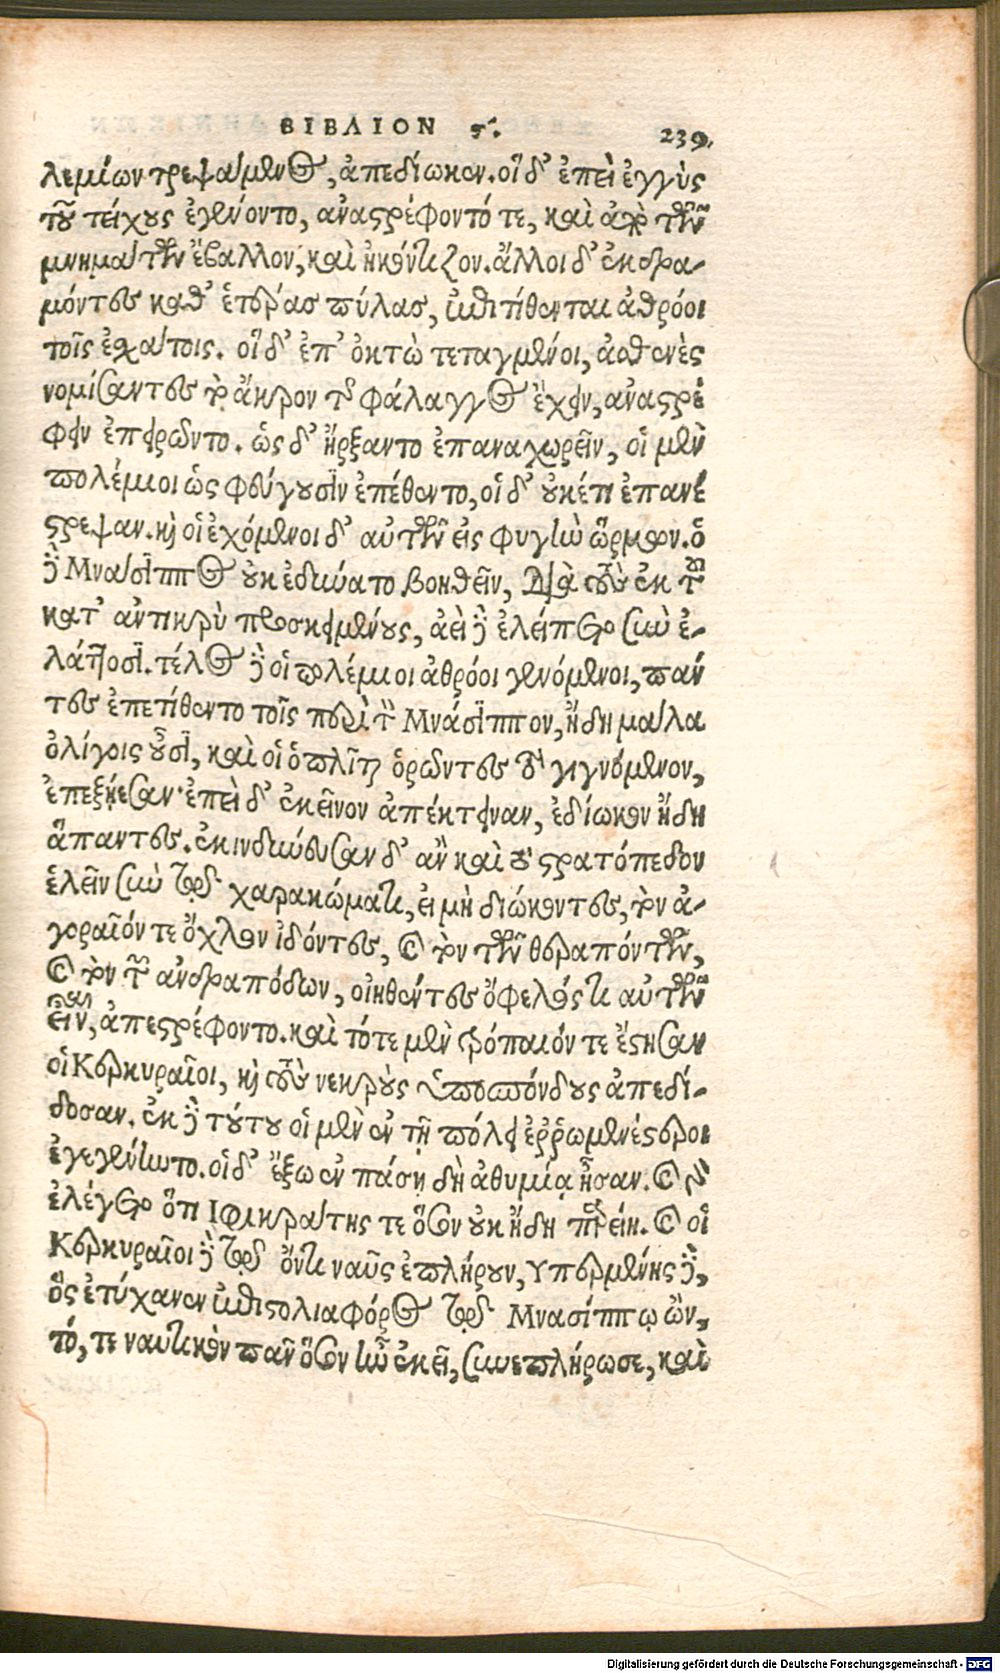 ΒΙΒΛΙΟΝ ϛ'. 239.
λεμίων τρεψάμενος, ἀπεδίωκεν. οἳ δ' ἐπεὶ ἐγγὺς
τοῦ τείχους ἐγένοντο, ἀνασρέφοντό τε, καὶ ἀπὸ τῶν
μνημάτων ἔβαλλον, καὶ ἠκόντιζον. ἄλλοι δ' ἐκδρα-
μόντες καθ' ἑτέρας πύλας, ἐπιτίθενται ἀθρόοι
τοῖς ἐχάτοις. οἳ δ' ἐπ' ὀκτὼ τεταγμένοι, ἀσθενὲς
νομίσαντες τὸ ἄκρον τῆς φάλαγγος ἔχειν, ἀναςρέ
φειν ἐπειρῶντο. ὡς δ' ἤρξαντο ἐπαναχωρεῖν, οἱ μὲν
πολέμιοι ὡς φεύγουσιν ἐπέθεντο, οἱ δ' οὐκέτι ἐπανέ
ςρεψαν. καὶ οἱ ἐχόμενοι δ' αὐτῶν εἰς φυγὴν ὥρμων. ὁ
δὲ Μνάσιππος οὐκ ἐδύνατο βοηθεῖν, διὰ τοὺς ἐκ τοῦ
κατ' ἀντικρὺ προσκειμένους, ἀεὶ δὲ ἐλείπετο σὺν ἐ-
λάττοσι. τέλος δὲ οἱ πολέμιοι ἀθρόοι γενόμενοι, πάν
τες ἐπετίθεντο τοῖς περὶ τὸν Μνάσιππον, ἤδη μάλα
ὀλίγοις οὖσι, καὶ οἱ ὁπλῖται ὁρῶντες τὸ γιγνόμενον,
ἐπεξῄεσαν· ἐπεὶ δ' ἐκεῖνον ἀπέκτειναν, ἐδίωκον ἤδη
ἅπαντες. ἐκινδύνευσαν δ' ἂν καὶ τὸ ςρατόπεδον
ἑλεῖν σὺν τῷ χαρακώματι, εἰ μὴ διώκοντες, τὸν ἀ-
γοραῖόν τε ὄχλον ἰδόντες, καὶ τὸν τῶν θεραπόντων,
καὶ τὸν τῶν ἀνδραπόδων, οἰηθέντες ὄφελός τι αὐτῶν
εἶναι, ἀπεςρέφοντο. καὶ τότε μὲν τρόπαιόν τε ἔςησαν
οἱ Κερκυραῖοι, καὶ τοὺς νεκροὺς ὑποσπόνδους ἀπεδί-
δοσαν. ἐκ δὲ τούτου οἱ μὲν ἐν τῇ πόλει ἐῤῥωμενέςεροι
ἐγεγένηντο. οἱ δ' ἔξω ἐν πάσῃ δὴ ἀθυμίᾳ ἦσαν. καὶ γὰρ
ἐλέγετο ὅτι Ιφικράτης τε ὅσον οὐκ ἤδη παρείη. καὶ οἱ
Κερκυραῖοι δὲ τῷ ὄντι ναῦς ἐπλήρουν, Υπερμένης δὲ,
ὃς ἐτύχανεν ἐπιςολιαφόρος τῷ Μνασίππῳ ὢν,
τό, τε ναυτικὸν πᾶν ὅσον ἦν ἐκεῖ, συνεπλήρωσε, καὶ
Digitalisierung gefördert durch die Deutsche Forschungsgemeinschaft - DFG